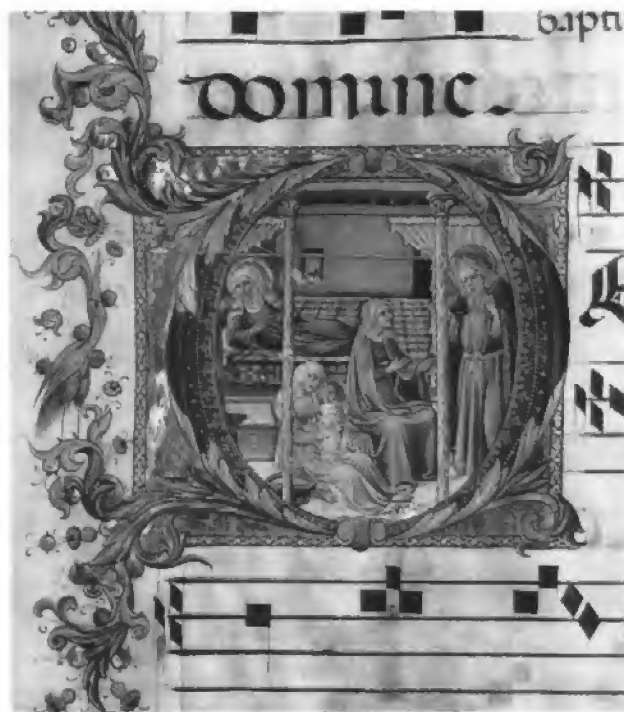 bapti
domine